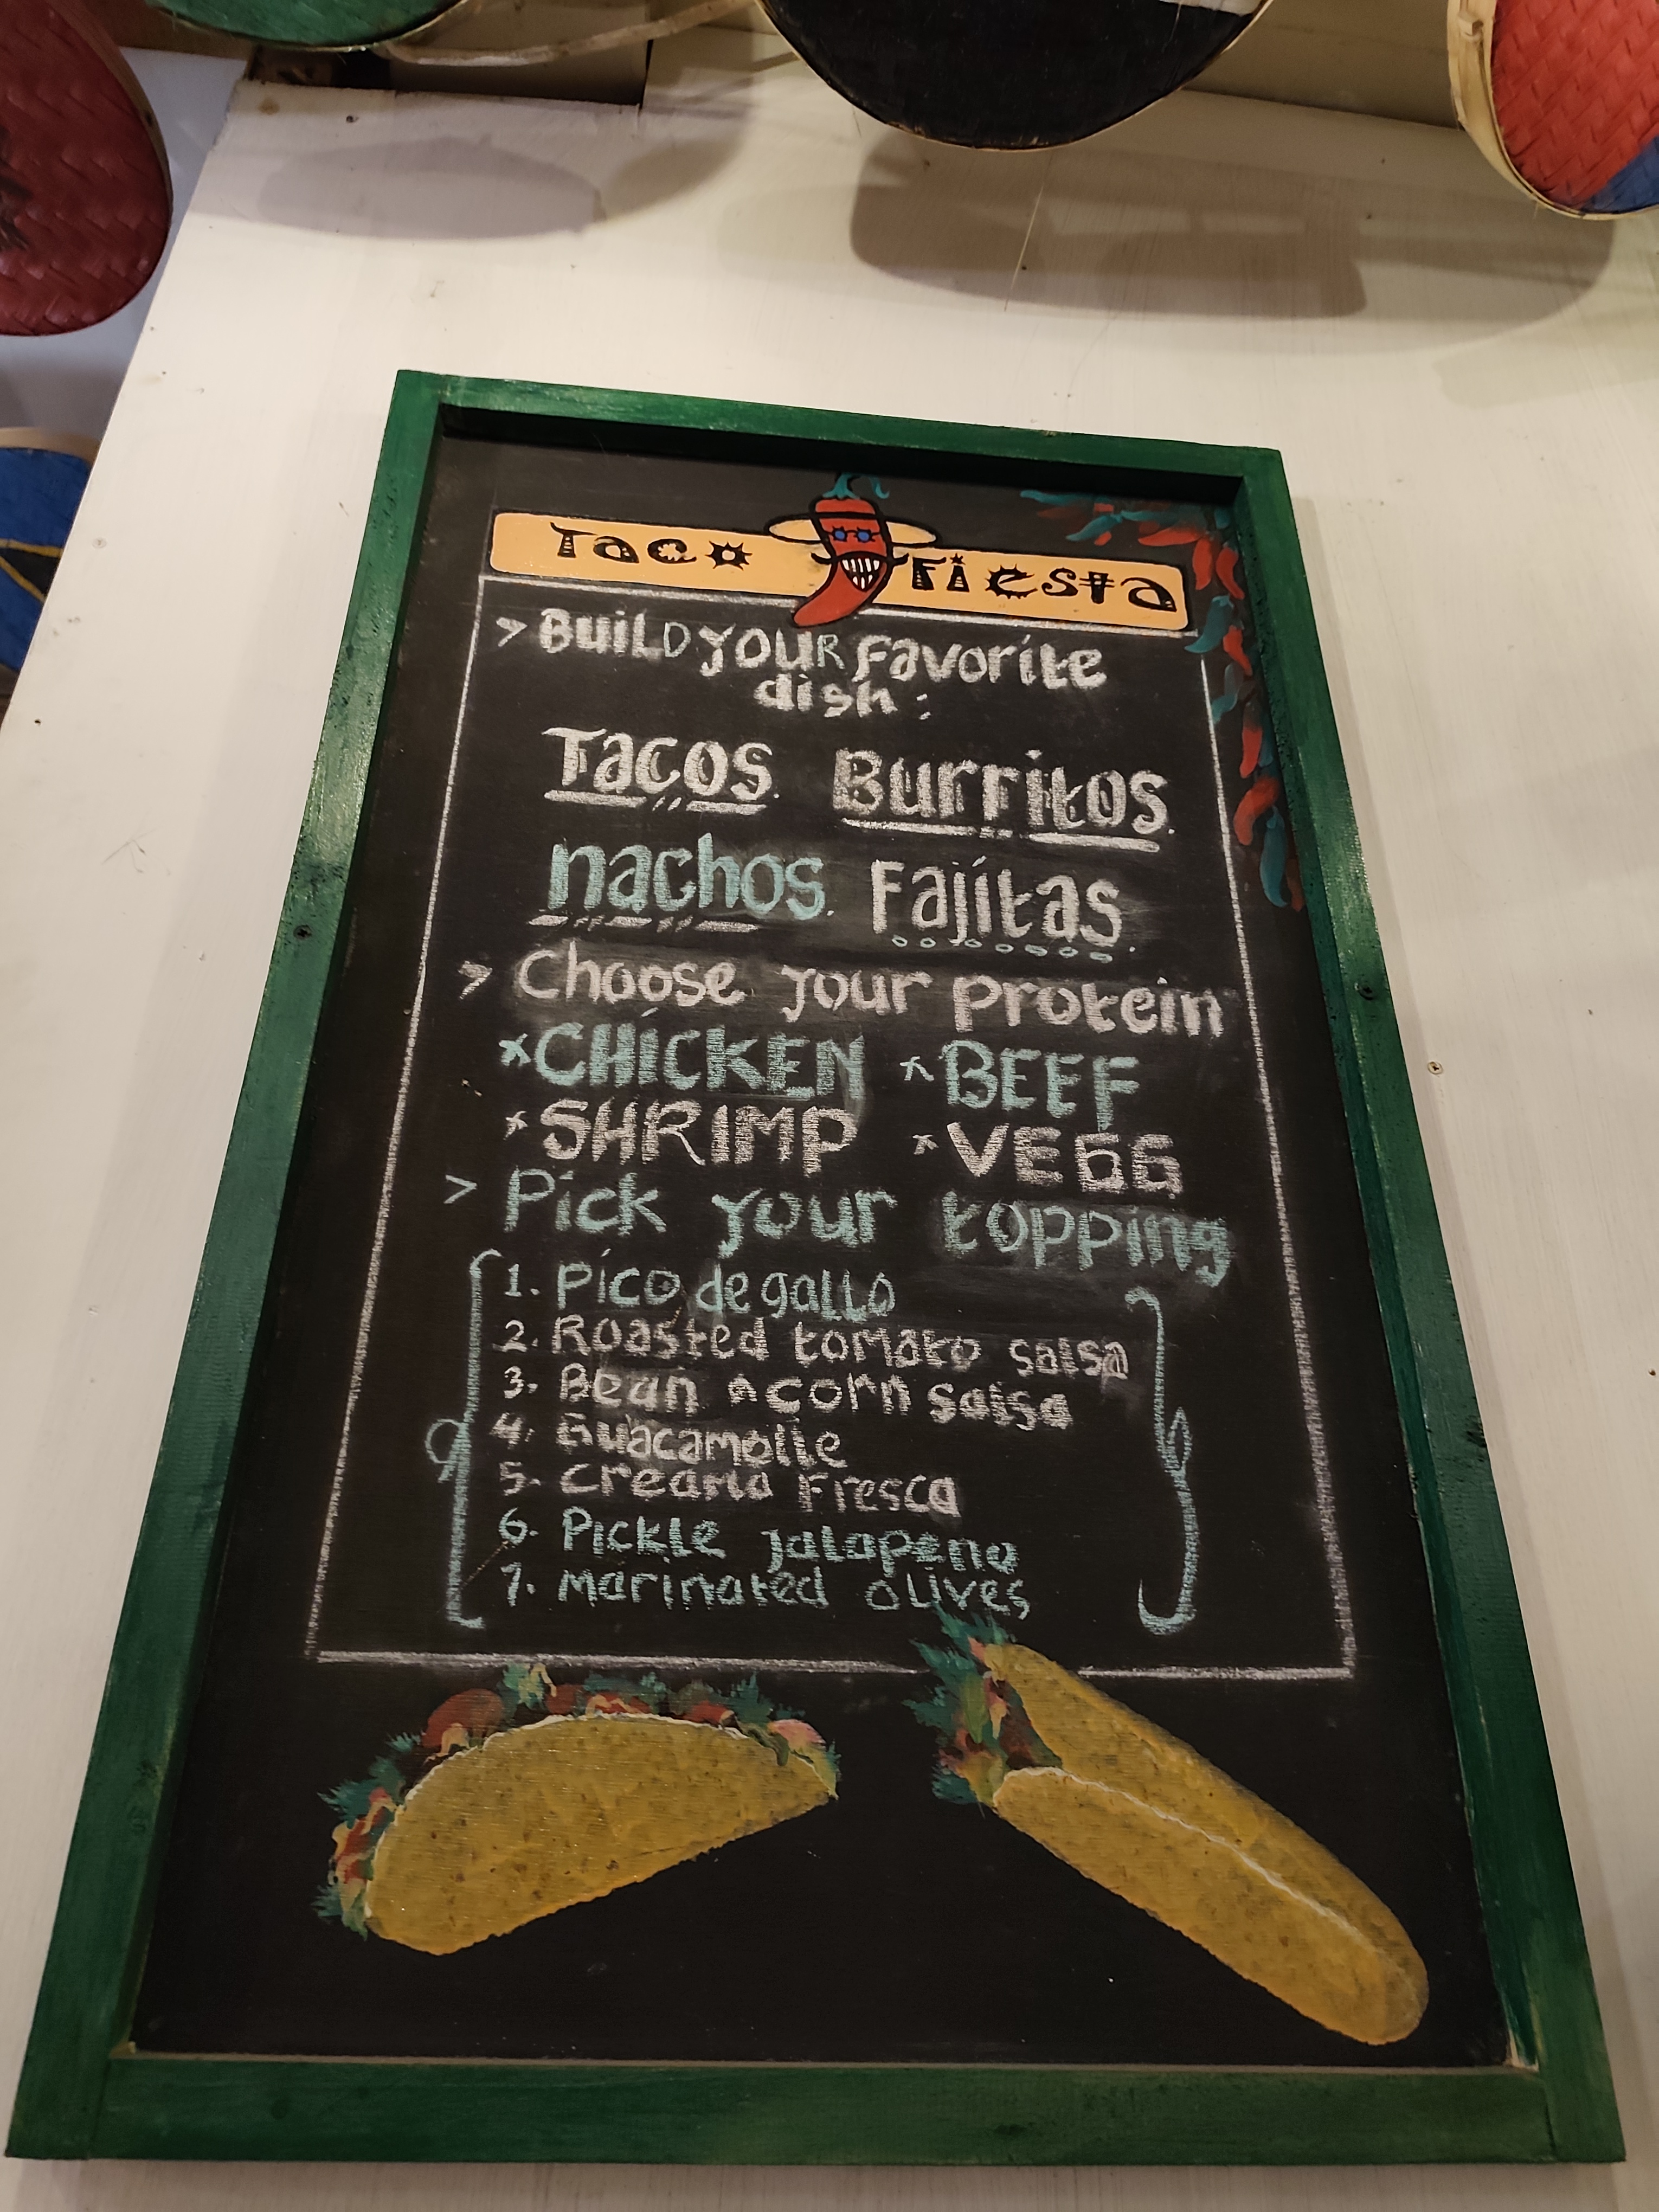 Taco Fiesta
> BuilD YOUR Favorite
dish :
Tacos. Burritos.
nachos. Fajitas.
> Choose your protein
*CHICKEN *BEEF
*SHRIMP *VEGG
> Pick your topping
1. Pico de gallo
2. Roasted tomato salsa
3. Bean n corn salsa
4. Guacamolle
5. Creama Fresca
6. Pickle jalapeno
7. marinated olives